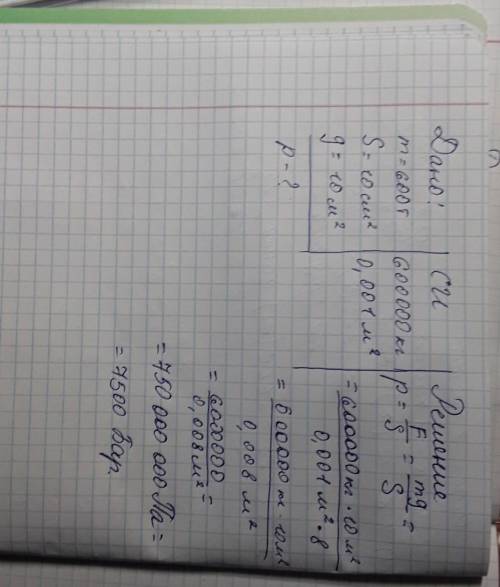 Дано:
m = 600т
S = 10 см²
g = 10 м²
p - ?
СИ
600000 кг
0,001 м²
Решение
p = F/S = mg/S =
= 600000кг · 10 м² / 0,001 м² · 8
= 600000 т · 10 м² / 0,008 м²
= 6000000 / 0,008 м² =
= 750 000 000 Па =
= 7500 Бар.